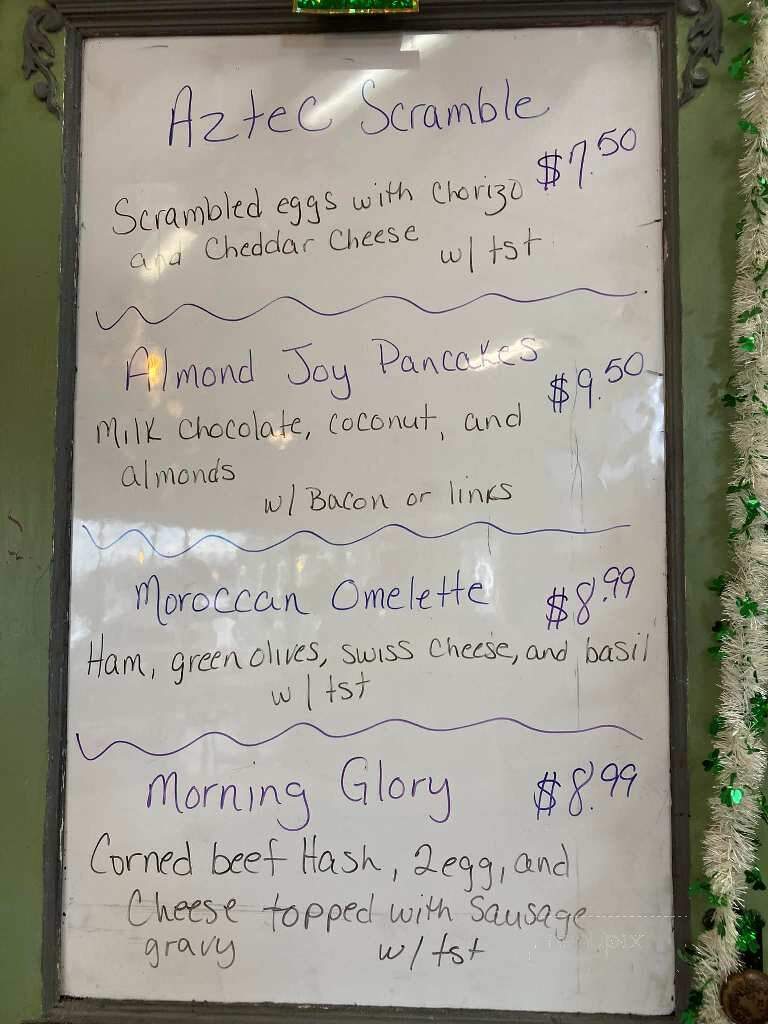 Aztec Scramble
$7.50
Scrambled eggs with Chorizo
and Cheddar Cheese w/ tst
Almond Joy Pancakes
$9.50
Milk chocolate, coconut, and
almonds
w/ Bacon or links
Moroccan Omelette $8.99
Ham, green olives, swiss cheese, and basil
w/ tst
Morning Glory $8.99
Corned beef Hash, 2egg, and
Cheese topped with Sausage
gravy w/ tst